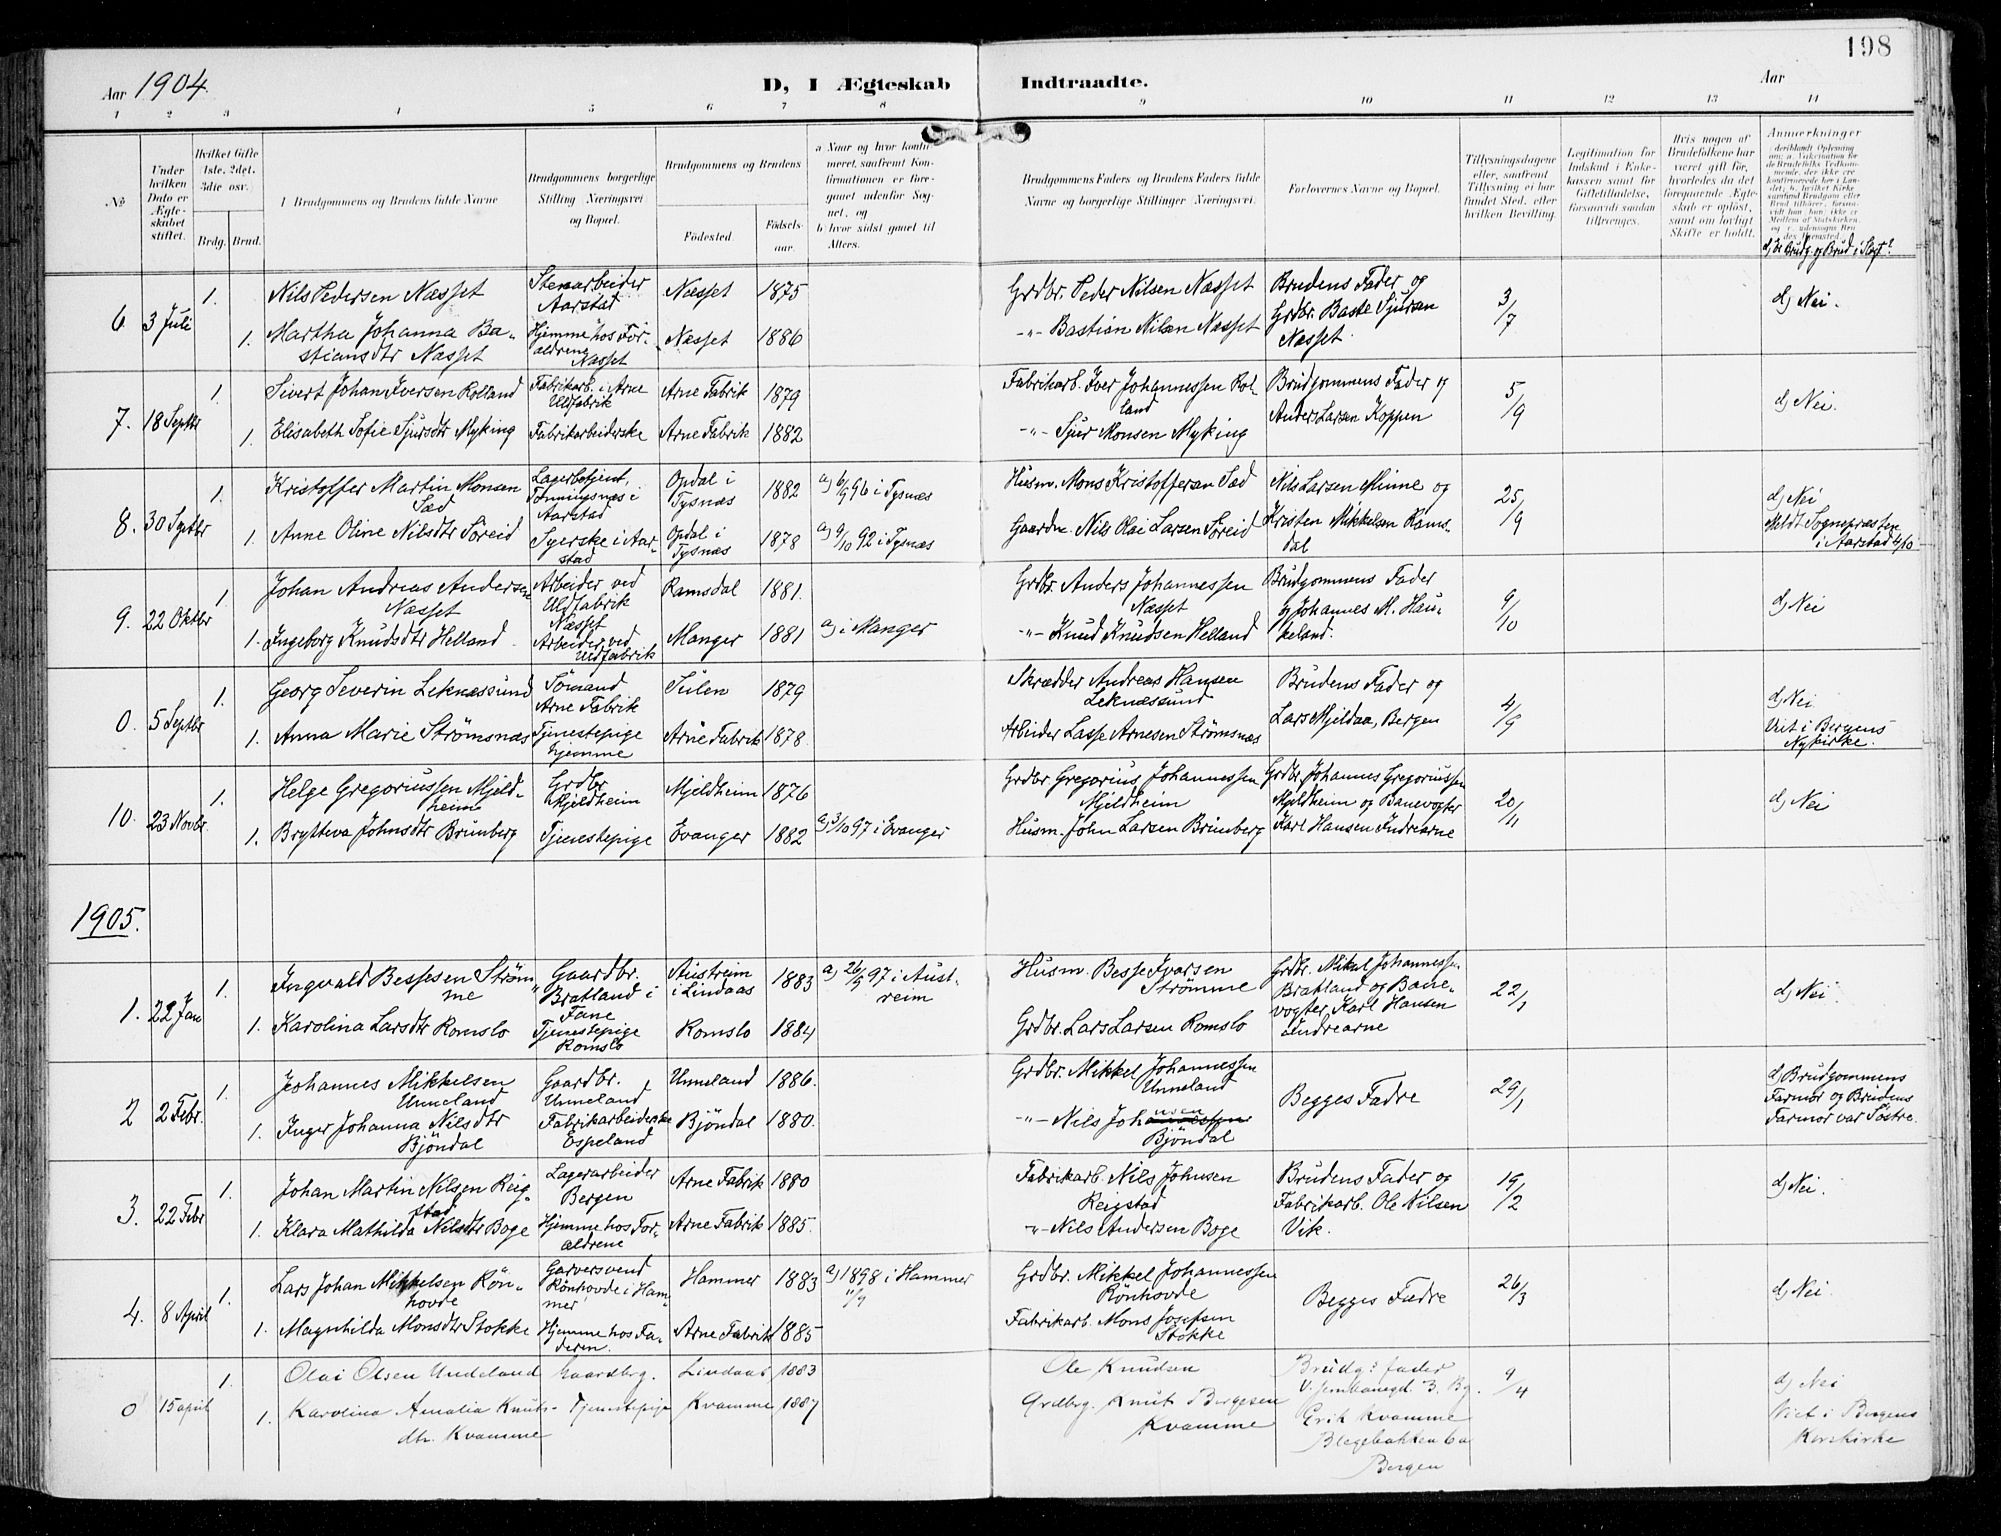 198
Aar 1904.
D, I Ægteskab Indtraadte.
Aar
1 2 3 4 5 6 7 8 9 10 11 12 13 14
No
Under hvilken Dato er Ægteskabet stiftet.
Hvilket Gifte 1ste, 2det, 3die osv.
Brdg. Brud.
Brudgommens og Brudens fulde Navne
Brudgommens borgerlige Stilling Næringsvei og Bopæl.
Brudgommens og Brudens
Fødested. Fødselsaar.
a Naar og hvor konfirmeret, saafremt Konfirmationen er foregaaet udenfor Sognet, og
b hvor sidst gaaet til Alters.
Brudgommens Faders og Brudens Faders fulde Navne og borgerlige Stillinger Næringsvei.
Forlovernes Navne og Bopæl.
Tillysningsdagene eller, saafremt Tillysning ei har fundet Sted, efter hvilken Bevilling.
Legitimation for Indskud i Enkekassen samt for Giftetilladelse, forsaavidt saadan tiltrænges.
Hvis nogen af Brudefolkene har været gift før, hvorledes da det foregaaende Ægteskab er opløst, samt om lovligt Skifte er holdt.
Anmerkninger
d, Er Brudg og Brud i Slegt?
6. 3 Juli 1. Nils Pedersen Næsset Stenarbeider Aarstad Næsset 1875 Grdbr. Peder Nilsen Næsset Brudens Fader og Grdbr. Baste Sjursen Næsset. 3/7 d, Nei.
1. Martha Johanna Bastiansdtr Næsset Hjemme hos Forældrene Næsset Næsset 1886 -"- Bastian Nilsen Næsset
7. 18 Septbr 1. Sivert Johan Iversen Rolland Fabrikarb. i Arne Uldfabrik Arne Fabrik 1879 Fabrikarb. Iver Johannessen Rolland Brudgommens Fader og Anders Larsen Koppen 5/9 d, Nei.
1. Elisabeth Sofie Sjursdtr Myking Fabrikarbeiderske Arne Fabrik 1882 -"- Sjur Monsen Myking
8. 30 Septbr 1. Kristoffer Martin Monsen Sæd Lagerbetjent, Aarstad Opdal i Tysnæs 1882 a, 6/9 96 i Tysnæs Husm. Mons Kristoffersen Sæd Nils Larsen Minne og Kristen Mikkelsen Ramsdal 25/9 d, Nei Meldt Sognepræsten i Aarstad 4/10
1. Anne Oline Nilsdtr Söreid Syerske i Aarstad Opdal i Tysnæs 1878 a, 9/10 92 i Tysnæs Gaardm. Nils Olai Larsen Söreid
9. 22 Oktbr 1. Johan Andreas Andersen Næsset Arbeider ved Uldfabrik Næsset Ramsdal 1881. Grdbr. Anders Johannessen Næsset Brudgommens Fader og Johannes M. Haukeland. 9/10 d, Nei
1. Ingeborg Knudsdtr Helland Arbeider ved Uldfabrik Manger 1881 a, i Manger -"- Knud Knudsen Helland
0. 5 Septbr 1. Georg Severin Leknæssund Sömand Arne Fabrik Sulen 1879 Skrædder Andreas Hansen Leknæssund Brudens Fader og Lars Mjeldaa, Bergen 4/9 d, Nei Viet i Bergens Nykirke.
1. Anna Marie Strömsnæs Tjenestepige hjemme Arne Fabrik 1878. Arbeider Lasse Arnesen Strömsnæs
10. 23 Novbr. 1. Helge Gregoriussen Mjeldheim Grdbr. Mjeldheim Mjeldheim 1876 Grdbr Gregorius Johannessen Mjeldheim Grdbr. Johannes Gregoriussen Mjeldheim og Banevogter Karl Hansen Indrearne 20/11 d, Nei
1. Brytteva Johnsdtr Brunberg Tjenestepige Evanger 1882 a, 3/10 97 i Evanger Husm. John Larsen Brunberg
1905.
1. 22 Jan 1. Ingvald Bessesen Strömme Gaardbr. Bratland i Fane Austreim i Lindaas 1883 a, 26/9 97 i Austreim Husm. Besse Ivarsen Strömme Grdbr. Mikal Johannessen Bratland og Banevogter Karl Hansen Indrearne 22/1 d, Nei.
1. Karolina Larsdtr Romslo Tjenestepige Romslo Romslo 1884 Grdbr. Lars Larsen Romslo
2 2 Febr. 1. Johannes Mikkelsen Unneland Gaardbr. Unneland Unneland 1886. Grdbr. Mikkel Johannessen Unneland Begges Fædre 29/1 d, Brudgommens Farmor og Brudens Farmor var Søstre.
1. Inger Johanna Nilsdtr Bjöndal Fabrikarbeiderske Espeland Bjöndal 1880. -"- Nils Johansen Bjöndal
3. 22 Febr 1. Johan Martin Nilsen Reigstad Lagerarbeider Bergen Arne Fabrik 1880 Fabrikarb. Nils Johnsen Reigstad Brudens Fader og Fabrikarb. Ole Nilsen Vik. 19/2 d, Nei.
1. Klara Mathilda Nilsdtr Boge Hjemme hos Forældrene Arne Fabrik 1885. -"- Nils Andersen Boge
4. 8 April 1. Lars Johan Mikkelsen Rönhovde Garversvend Rönhovde i Hammer Hammer 1883 a, 1898 i Hammer 11/9 Grdbr. Mikkel Johannessen Rönhovde Begges Fædre 26/3 d, Nei.
1. Magnhilda Monsdtr Stokke Hjemme hos Faderen. Arne Fabrik 1885 Fabrikarb. Mons Josefsen Stokke
0 15 april 1. Olai Olsen Undeland Gaardbrg. Lindaas 1883 Ole Knudsen Brudg: fader V. Jernbanegd. 3. Bg. Erik Kvamme Blegebakken 6a Bergen 9/4 d, Nei Viet i Bergens Korskirke
1. Karolina Amalia Knutsdtr. Kvamme Tjenestepige Kvamme 1887 Grdbrg. Knut Børgesen Kvamme